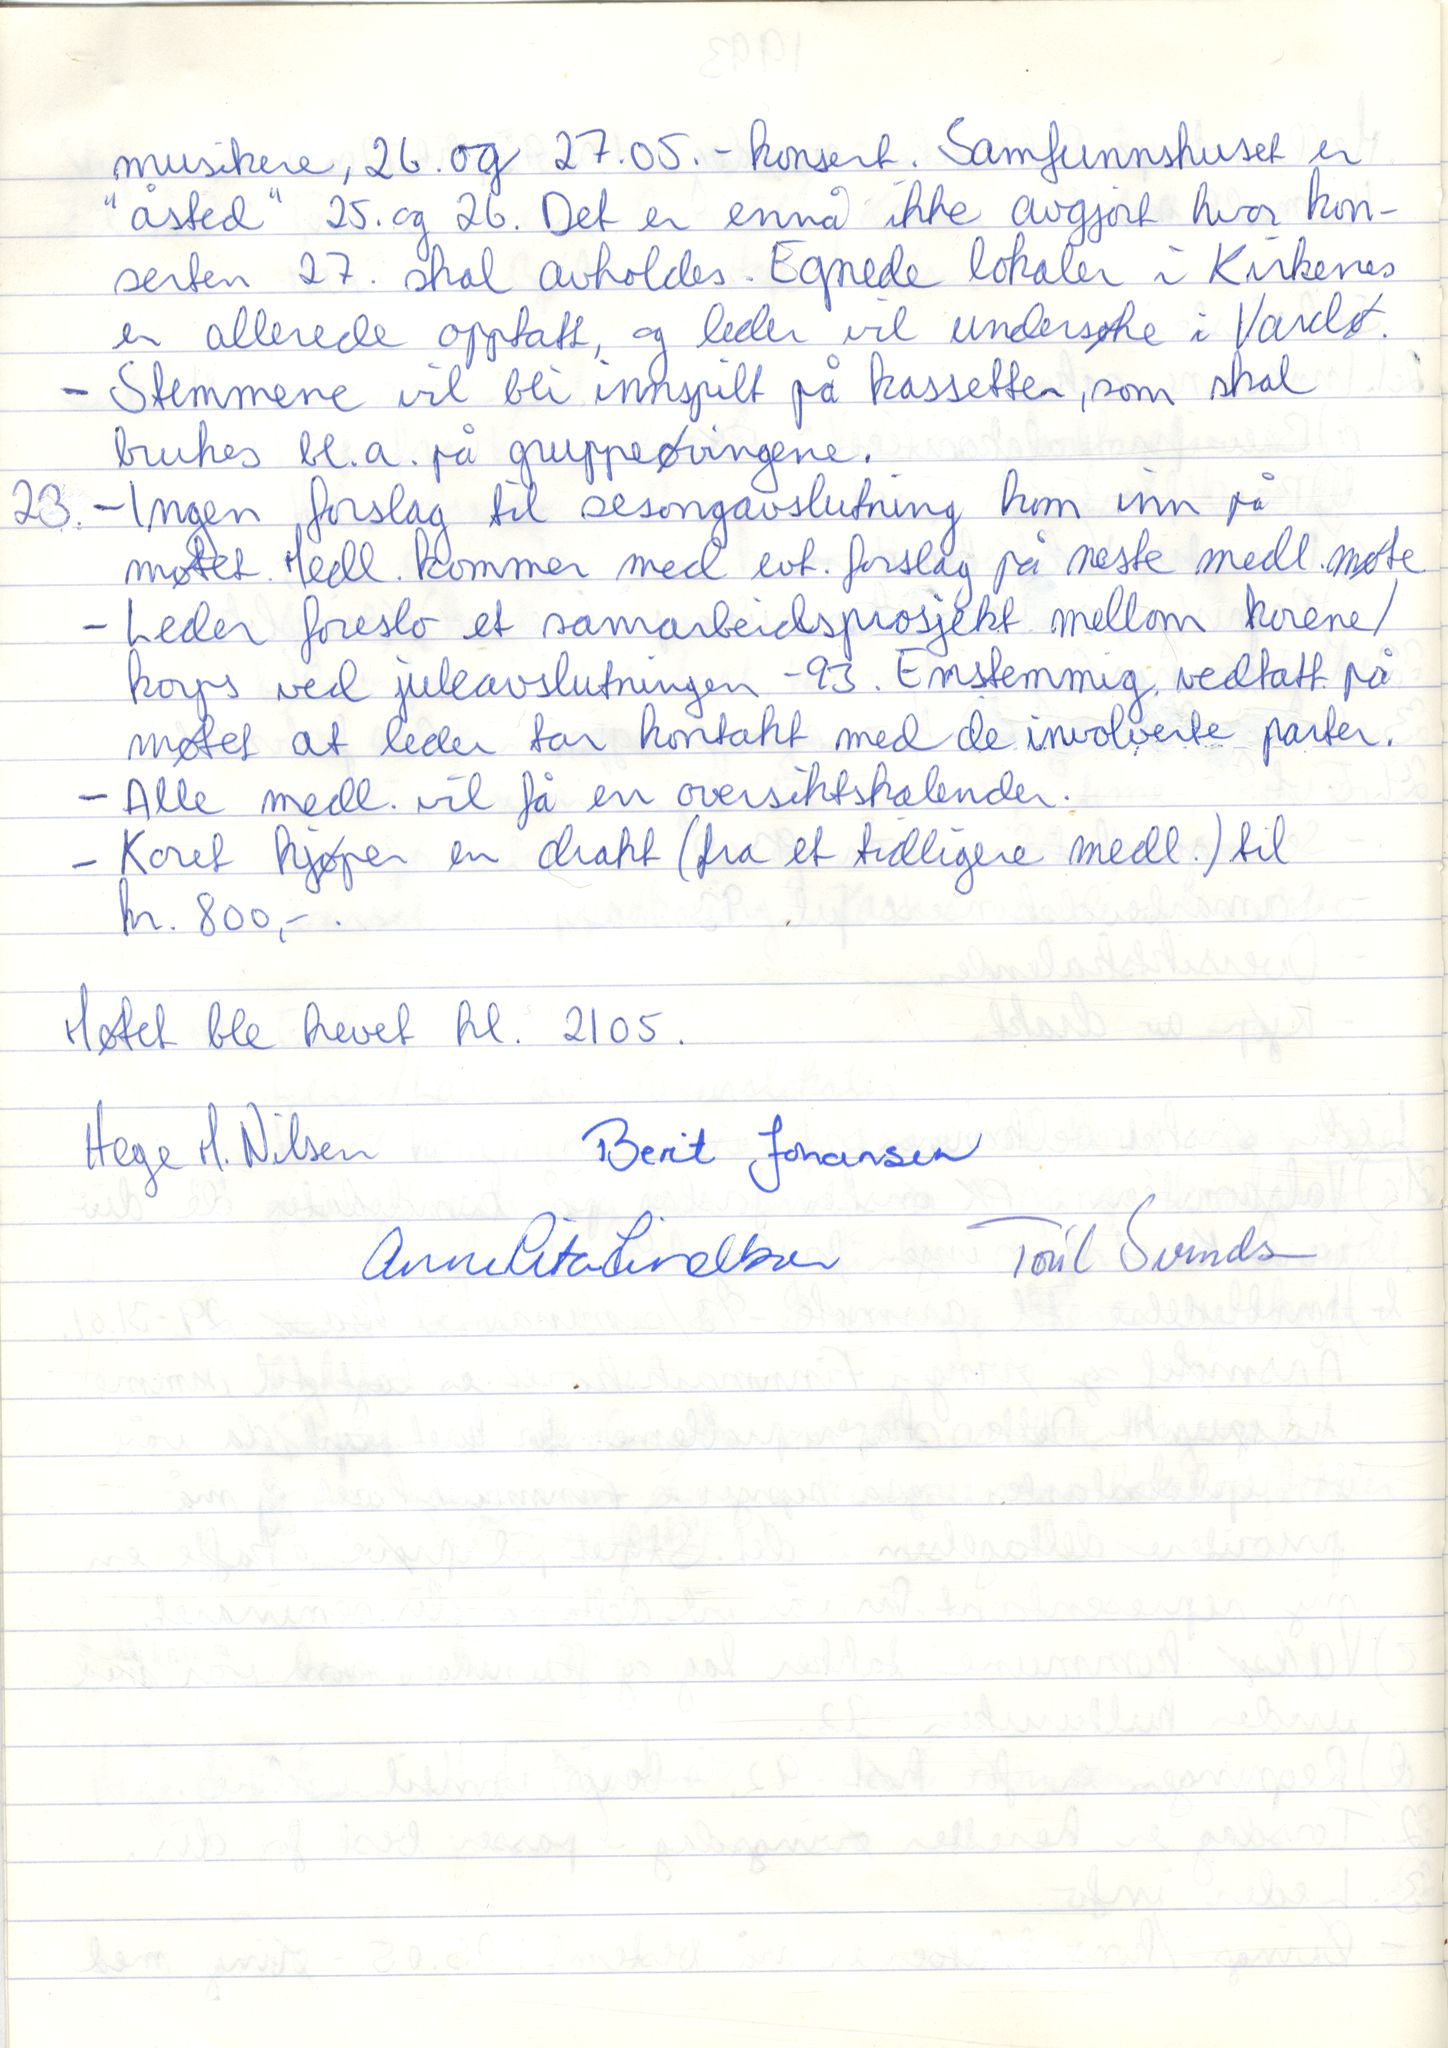 musikere, 26. og 27.05. - konsert. Samfunnshuset er
"åsted" 25. og 26. Det er ennå ikke avgjort hvor kon-
serten 27. skal avholdes. Egnede lokaler i Kirkenes
er allerede opptatt, og leder vil undersøke i Vardø.
- Stemmene vil bli innspilt på kassetter, som skal
brukes bl.a. på gruppeøvingene.
23. - Ingen forslag til sesongavslutning kom inn på
møtet. Medl. kommer med evt. forslag på neste medl.møte
- Leder foreslo et samarbeidsprosjekt mellom korene/
korps ved juleavslutningen -93. Enstemmig vedtatt på
møtet at leder tar kontakt med de involverte parter.
- Alle medl. vil få en oversiktskalender.
- Koret kjøper en drakt (fra et tidligere medl.) til
kr. 800,-.
Møtet ble hevet kl. 2105.
Hege M. Nilsen Berit Johansen
Anne Rita Lindbar Toril Svends